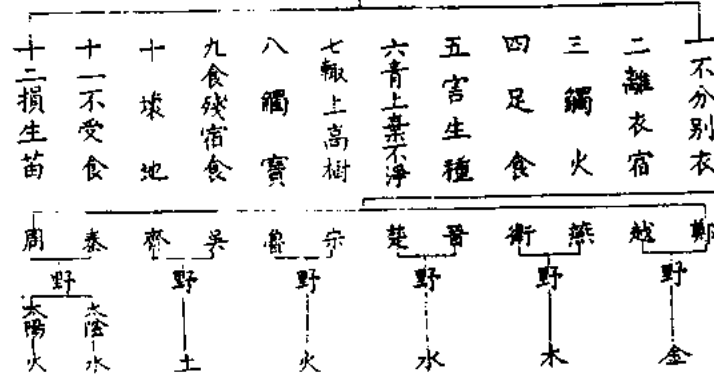 一不分別衣
二離衣宿
三觸火
四足食
五害生種
六青上棄不淨
七輙上高樹
八觸寶
九食殘宿食
十壞地
十一不受食
十二損生苗
鄭 越 燕 衛 晉 楚 宗 魯 吳 齊 秦 周
野 野 野 野 野 野
金 木 水 火 土 太陰水 太陽火